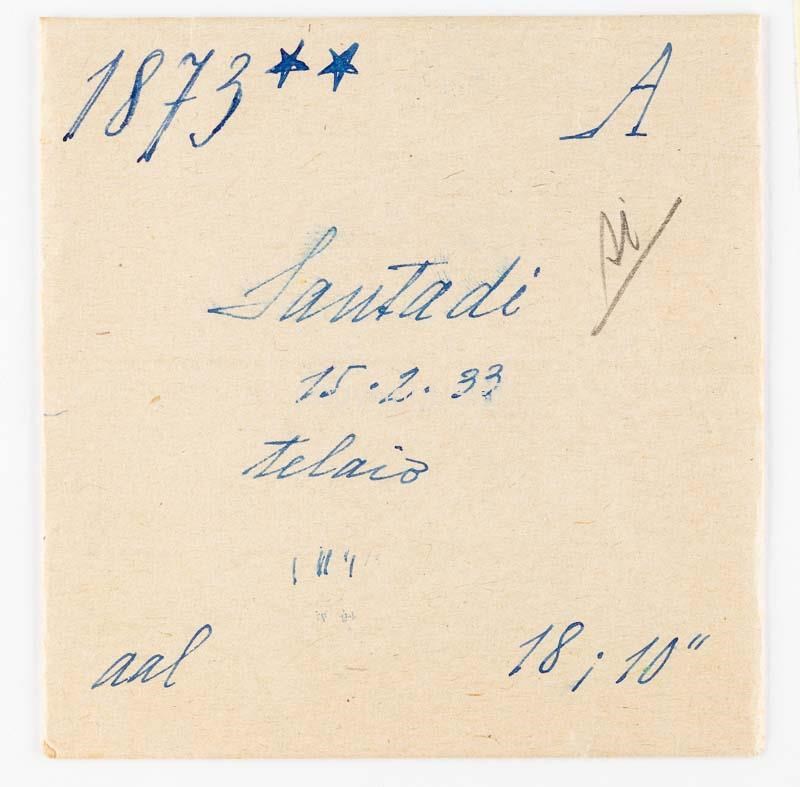 1873★★ A
si
Santadi
15.2.33
telaio
aal 18; 10"